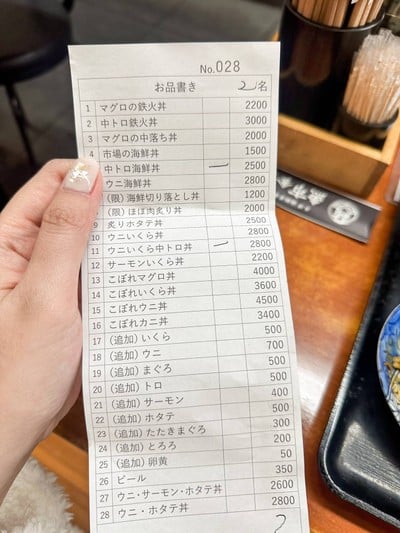 No.028
お品書き 2名
1 マグロの鉄火丼 2200
2 中トロ鉄火丼 3000
3 マグロの中落ち丼 2000
4 市場の海鮮丼 1500
中トロ海鮮丼 一 2500
ウニ海鮮丼 2800
(限) 海鮮切り落とし丼 1200
(限) ほほ肉炙り丼 2000
9 炙りホタテ丼 2500
10 ウニいくら丼 2800
11 ウニいくら中トロ丼 一 2800
12 サーモンいくら丼 2200
13 こぼれマグロ丼 4000
14 こぼれいくら丼 3600
15 こぼれウニ丼 4500
16 こぼれカニ丼 3400
17 (追加) いくら 500
18 (追加) ウニ 700
19 (追加) まぐろ 500
20 (追加) トロ 500
21 (追加) サーモン 400
22 (追加) ホタテ 500
23 (追加) たたきまぐろ 300
24 (追加) とろろ 200
25 (追加) 卵黄 50
26 ビール 350
27 ウニ・サーモン・ホタテ丼 2600
28 ウニ・ホタテ丼 2800